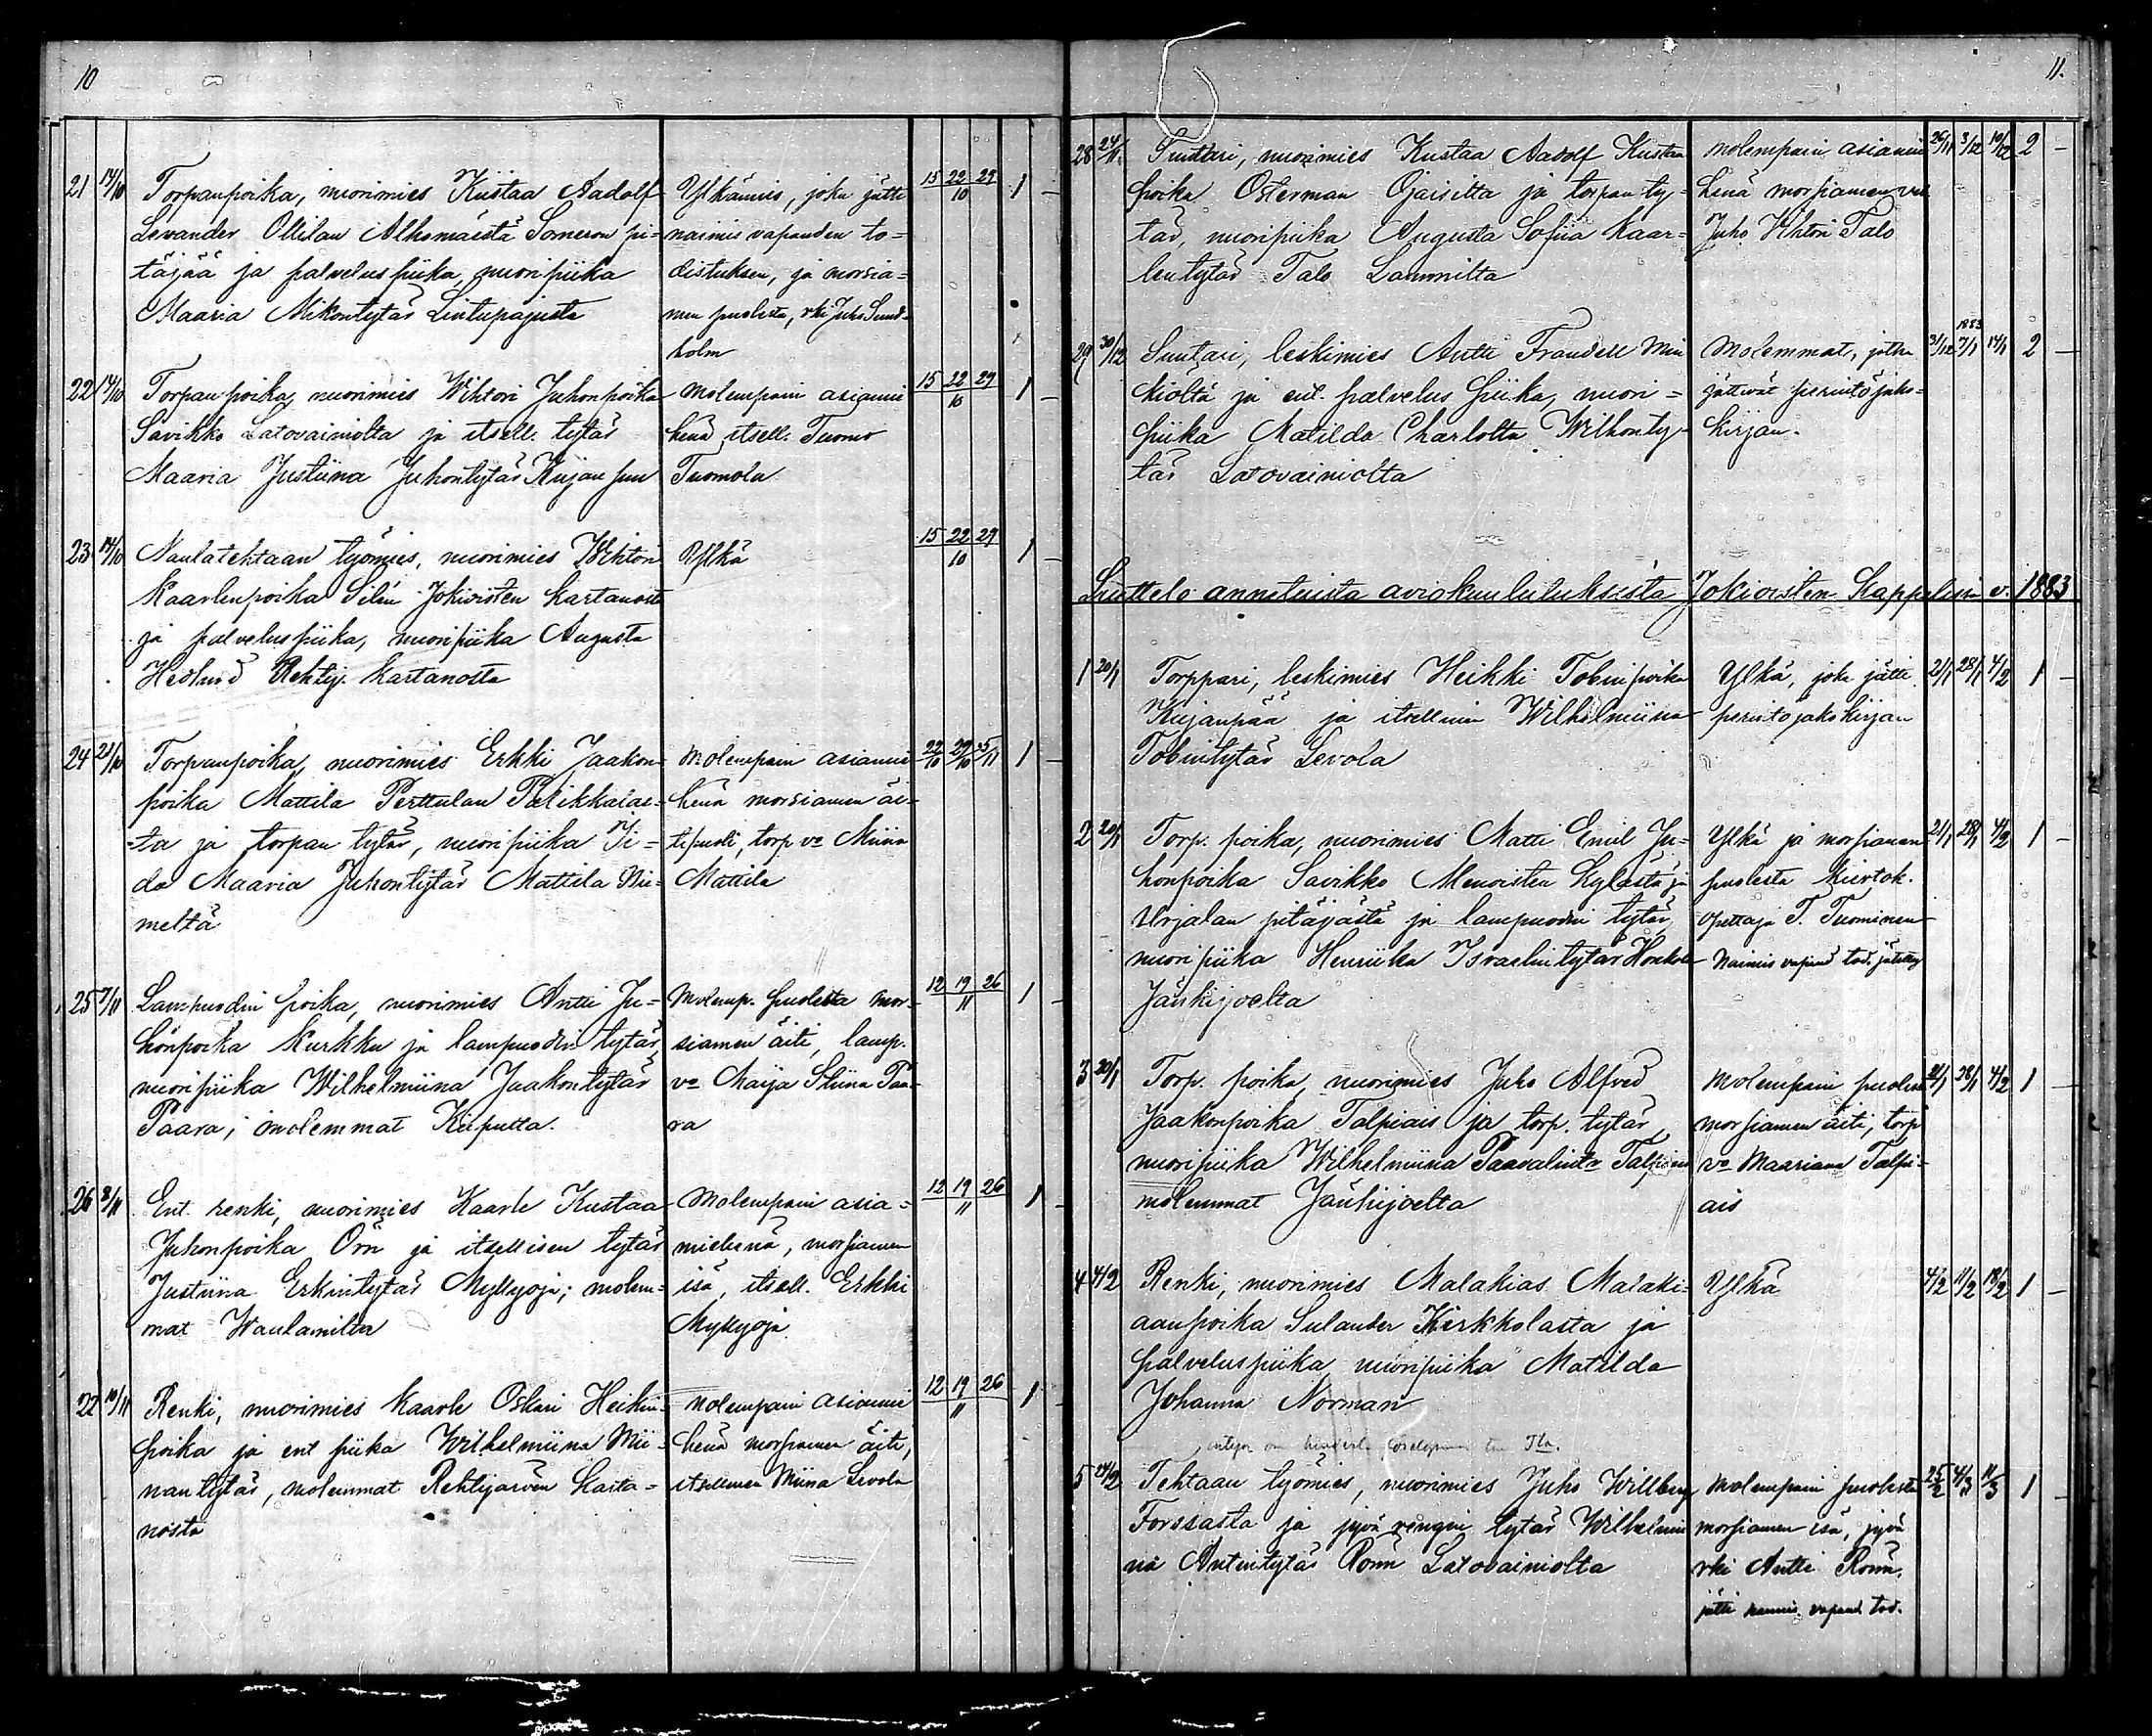 10
21 14/10 Torpanpoika, nuorimies Kustaa Aadolf Ylkämies, joka jätti 15 22 29 1 -
Levander Ollilan Alhomäestä Someron pi= naimis vapauden to= 10
täjää ja palveluspiika, nuoripiika distuksen, ja morsia=
Maaria Mikontytär Lintupajusta men puolesta, rki Juho Sund=
holm
22 14/10 Torpanpoika, nuorimies Wihtori Juhonpoika Molempain asiamie 15 22 29 1 -
Savikko Latovainiolta ja itsell. tytär henä itsell. Tuomo 10
Maaria Justiina Juhontytär Kujanpuu Tuomola
23 14/10 Naulatehtaan työmies, nuorimies Wihtori Ylkä 15 22 29 1 -
Kaarlenpoika Silin Jokioisten kartanosta 10
ja palveluspiika, nuoripiika Augusta
Hedlund Rehtij. kartanosta
24 21/10 Torpanpoika, nuorimies Erkki Jaakon= Molempain asiamie 22/10 29/10 5/11 1 -
poika Mattila Perttulan Palikkalas= henä morsiamen äi=
=ta ja torpan tytär, nuoripiika Ii= tipuoli, torp. vo Miina
da Maaria Juhontytär Mattila Nie= Mattila
meltä
25 7/11 Lampuodin poika, nuorimies Antti Ju= Molemp. puolesta mor= 12 19 26 1 -
honpoika Kurkku ja lampuodin tytär, siamen äiti, lamp. 11
nuoripiika Wilhelmiina Jaakontytär vo Maija Stiina Paa=
Paara; molemmat Kiipulta. ra
26 8/11 Ent. renki, nuorimies Kaarle Kustaa Molempain asia= 12 19 26 1 -
Juhonpoika Örn ja itsellisen tytär miehenä, morsiamen 11
Justiina Erkintytär Myllyoja; molem= isä, itsell. Erkki
mat Waulamilta Myllyoja
22 10/11 Renki, nuorimies Kaarle Oskari Heikin= Molempain asiamie 12 19 26 1 -
poika ja ent piika Wilhelmiina Mii= henä morsiamen äiti, 11
nantytär, molemmat Rehtijärven karta= itsellinen Miina Levola
nosta
11.
28 24/11 Tuntari, nuorimies Kustaa Aadolf Kustaa Molempain asiamie 26/11 3/12 10/12 2 -
poika Österman Ojaisilta ja torpan ty= henä morsiamen veli
tär, nuoripiika Augusta Sofiia Kaar= Juho Wihtori Talo
lentytär Talo Lammilta
29 30/12 Suutari, leskimies Antti Frandell Min Molemmat, jotka 31/12 1883 7/1 14/1 2 -
kiöltä ja ent. palvelus piika, nuori= jättivät perintöjako=
piika Matilda Charlotta Wilhonty= kirjan.
tär Latovainiolta
Luettelo annetuista aviokuulutuksista Jokioisten Kappelissa v. 1883
1 20/1 Torppari, leskimies Heikki Tobinpoika Ylkä, joka jätti 21/1 28/1 4/2 1 -
Kujanpää ja itsellinen Wilhelmiina perintöjakokirjan
Tobintytär Levola
2 20/1 Torp. poika, nuorimies Matti Emil Ju= Ylkä ja morsiamen 21/1 28/1 4/2 1 -
honpoika Savikko Menoisten kylästä ja puolesta kiertok.
Urjalan pitäjästä ja lampuodin tytär, opettaja T. Tuominen
nuoripiika Henriika Israelintytär Honkola Naimis vapaud tod. jätetty
Jänhijoelta
3 20/1 Torp. poika, nuorimies Juho Alfred Molempain puolesta 21/1 28/1 4/2 1 -
Jaakonpoika Talpiais ja torp. tytär, morsiamen äiti, torp
nuoripiika Wilhelmiina Paavalintr Talpiais vo Maariana Talpi=
molemmat Jänhijoelta ais
4 4/2 Renki, nuorimies Malakias Malaki= Ylkä 4/2 11/2 18/2 1 -
aanpoika Sulander Kirkkolasta ja
palveluspiika, nuoripiika Matilda
Johanna Norman
5 24/2 Tehtaan työmies, nuorimies Juho Willberg Molempain puolesta 25/2 4/3 11/3 1 -
Forssasta ja jyvä rengin tytär Wilhelmii morsiamen isä, jyvä
na Antintytär Rönn Latovainiolta rki Antti Rönn,
jätti naimis. vapaud. tod.